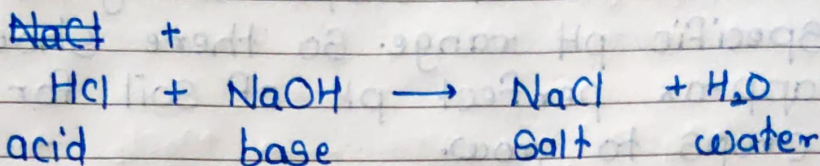 NaCl +
HCl + NaOH → NaCl + H₂O
acid base Salt water